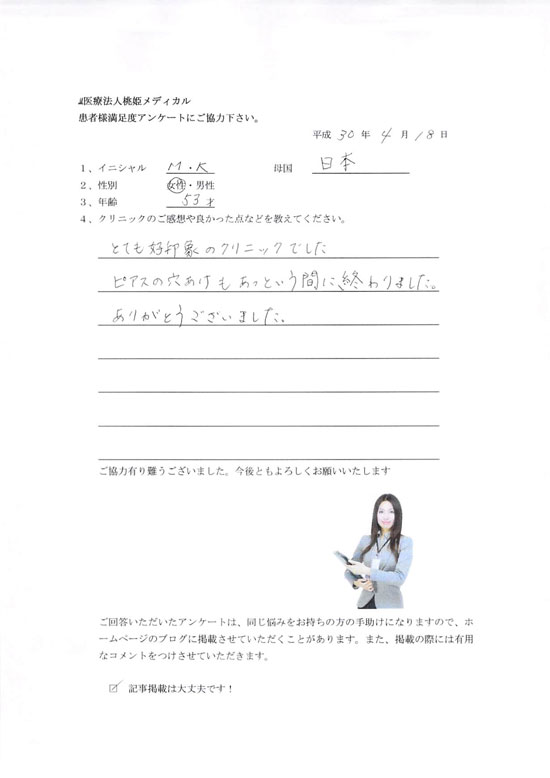 医療法人桃姫メディカル
患者様満足度アンケートにご協力下さい。
平成 30 年 4 月 18 日
1、イニシャル M・K 母国 日本
2、性別 女性・男性
3、年齢 53才
4、クリニックのご感想や良かった点などを教えてください。
とても好印象のクリニックでした
ピアスの穴あけもあっという間に終わりました。
ありがとうございました。
ご協力有り難うございました。今後ともよろしくお願いいたします
ご回答いただいたアンケートは、同じ悩みをお持ちの方の手助けになりますので、ホ
ームページのブログに掲載させていただくことがあります。また、掲載の際には有用
なコメントをつけさせていただきます。
☑ 記事掲載は大丈夫です！